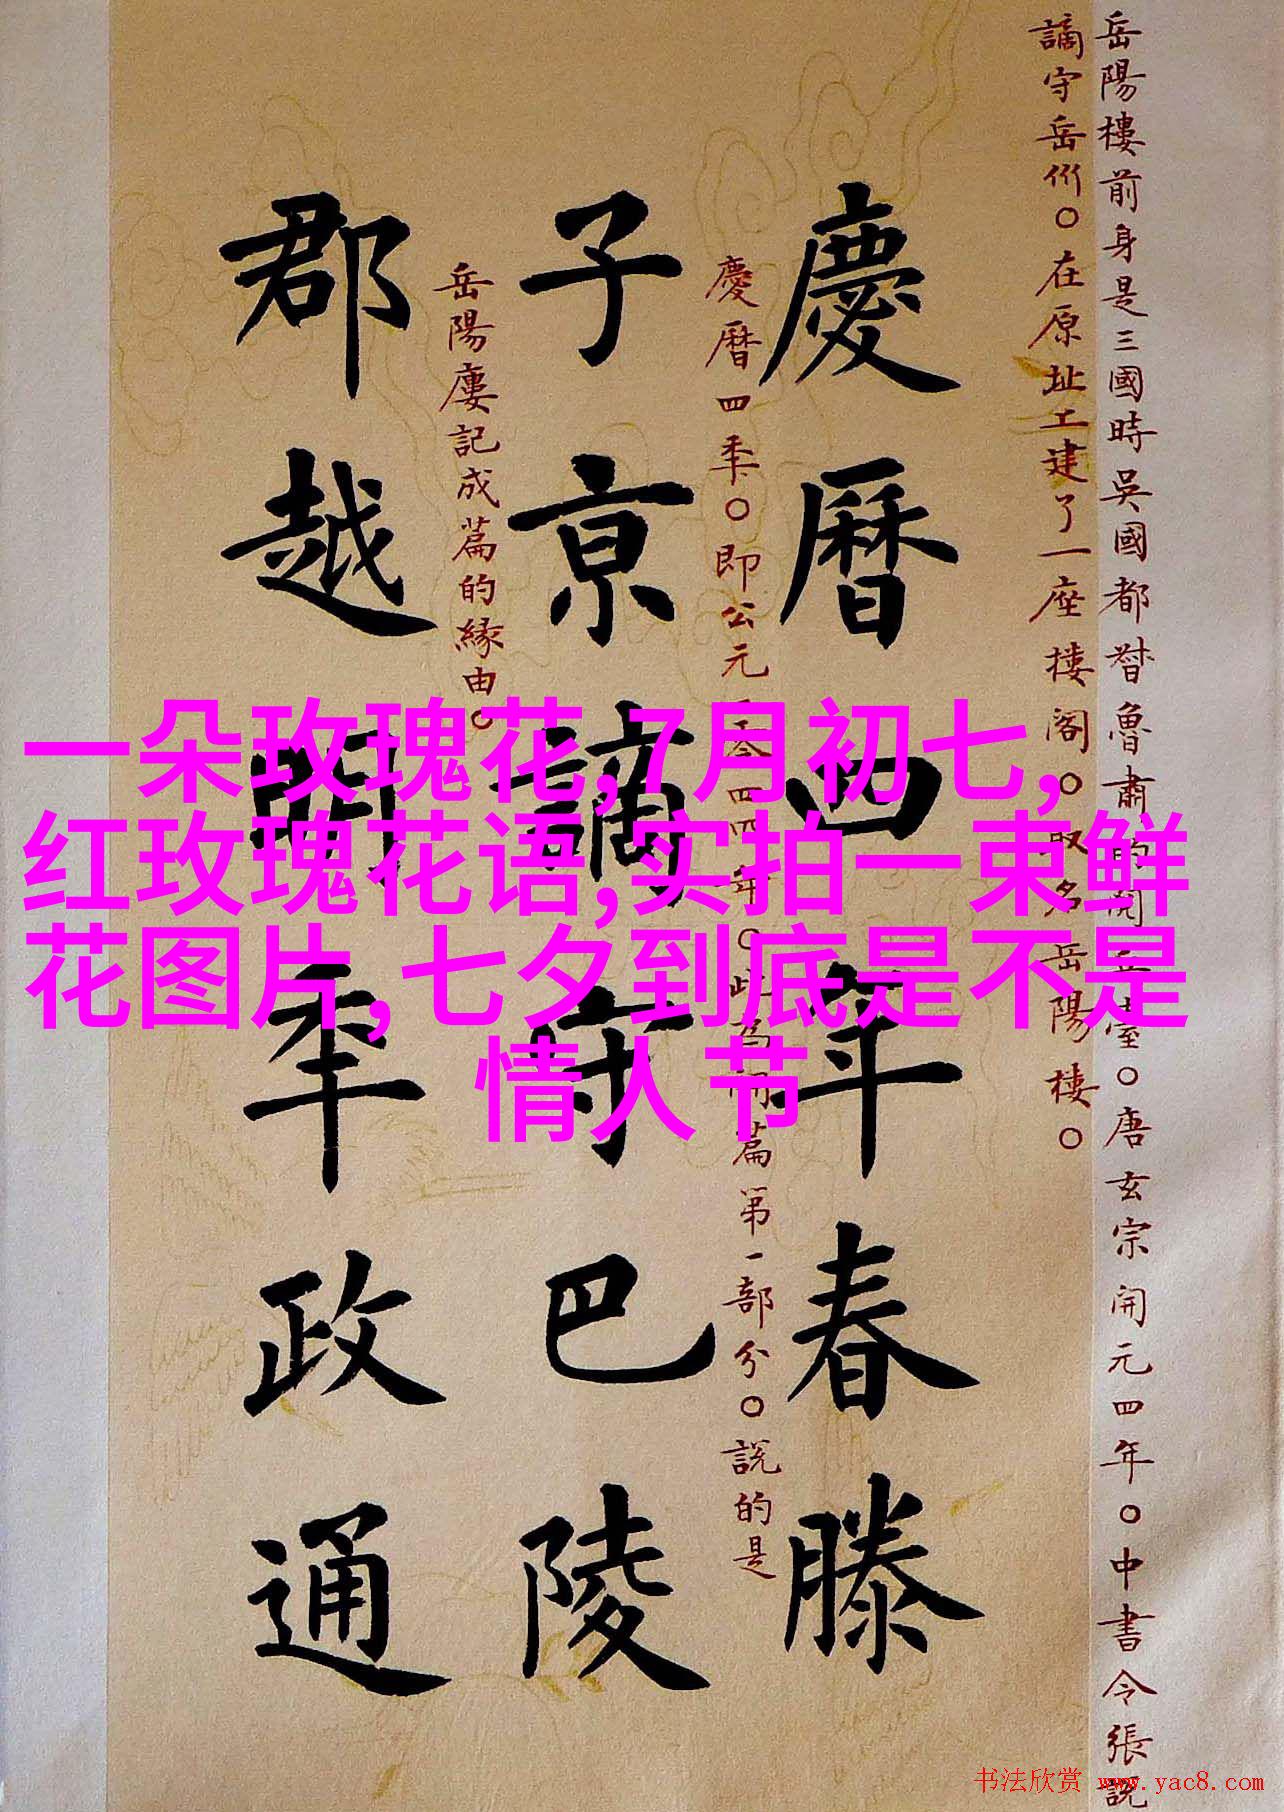 一朵玫瑰花,7月初七,
红玫瑰花语,实拍一束鲜
花图片,七夕到底是不是
情人节
岳陽樓前身是三國時吳國都督魯肅的閱兵臺。唐玄宗開元四年。中書令張說
謫守岳州。在原址上建了一座樓閣。取名岳陽樓。
慶曆四年春滕
慶曆四年。即公元一零四四年。此為開篇第一部分。說的是
子京謫守巴陵
岳陽樓記成篇的緣由。
郡越明年政通
书法欣赏 www.yac8.com